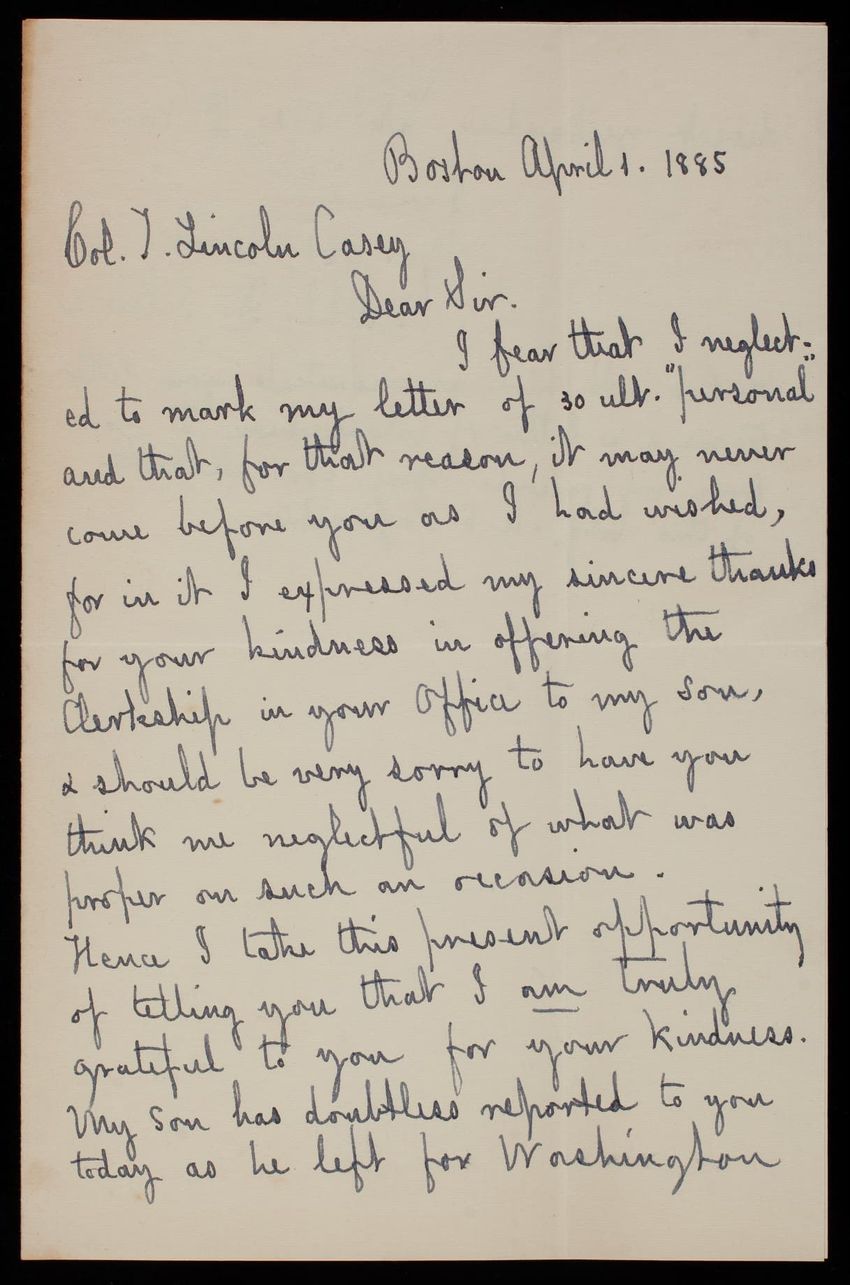 Boston April 1. 1885
Col. T. Lincoln Casey
Dear Sir.
I fear that I neglect-
ed to mark my letter of 30 ult. "personal"
and that, for that reason, it may never
come before you as I had wished,
for in it I expressed my sincere thanks
for your kindness in offering the
Clerkship in your Office to my son,
& should be very sorry to have you
think me neglectful of what was
proper on such an occasion.
Hence I take this present opportunity
of telling you that I am truly
grateful to you for your kindness.
My son has doubtless reported to you
today as he left for Washington